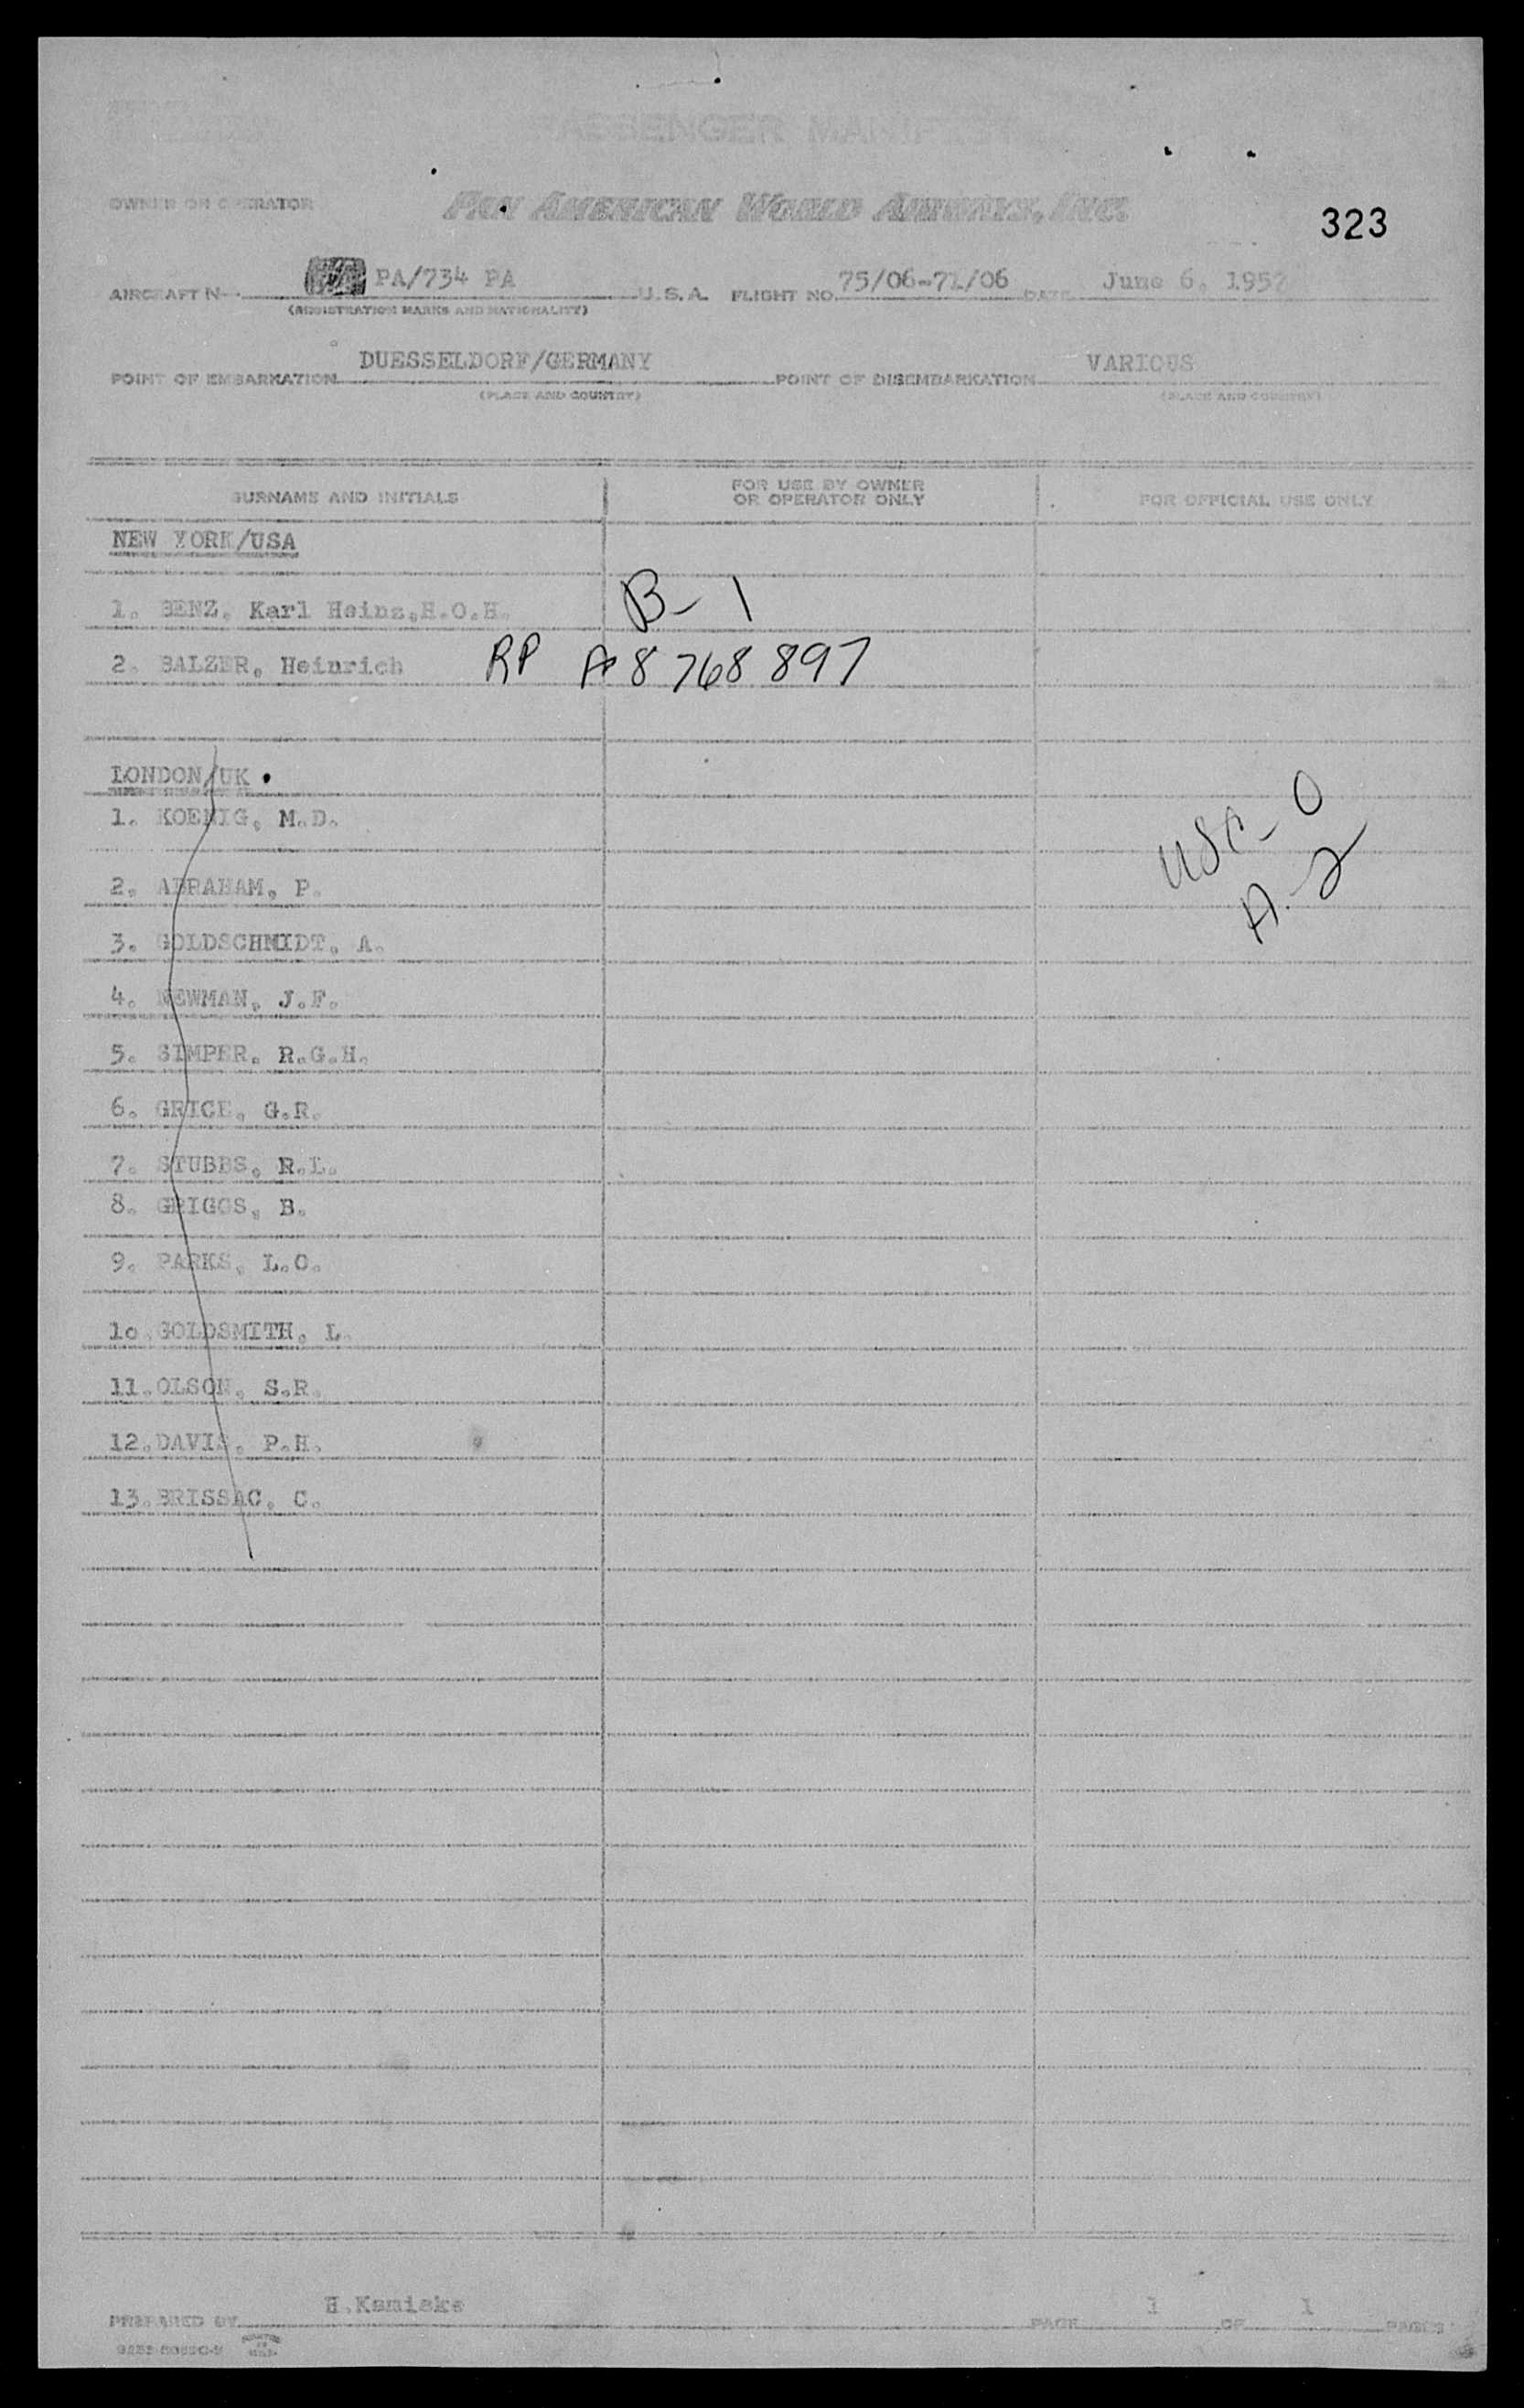 PASSENGER MANIFEST
OWNER OR OPERATOR PAN AMERICAN WORLD AIRWAYS, INC.
323
AIRCRAFT N- PA/734 PA U.S.A. FLIGHT NO. 75/06-71/06 DATE June 6, 1952
(REGISTRATION MARKS AND NATIONALITY)
POINT OF EMBARKATION DUESSELDORF/GERMANY POINT OF DISEMBARKATION VARIOUS
(PLACE AND COUNTRY) (PLACE AND COUNTRY)
SURNAME AND INITIALS FOR USE BY OWNER OR OPERATOR ONLY FOR OFFICIAL USE ONLY
NEW YORK/USA
1. BENZ, Karl Heinz,H.O.H. B-1
2. BALZER, Heinrich RP A8 768 897
LONDON/UK
1. KOENIG, M.D.
USC-0
2. ABRAHAM, P.
A-2
3. GOLDSCHMIDT, A.
4. NEWMAN, J.F.
5. SIMPER, R.G.H.
6. GRICE, G.R.
7. STUBBS, R.L.
8. GRIGGS, B.
9. PARKS, L.O.
10.GOLDSMITH, L.
11.OLSON, S.R.
12.DAVIS, P.H.
13.BRISSAC, C.
PREPARED BY H.Kamieke PAGE 1 OF 1 PAGES